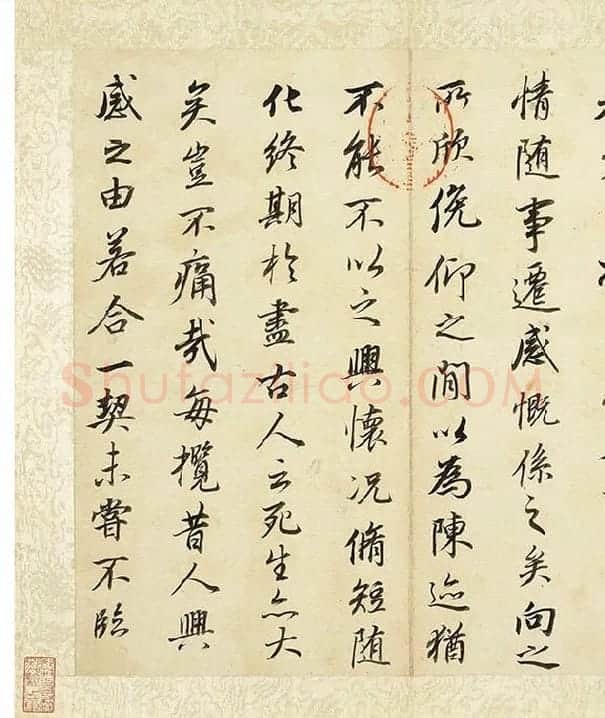 情随事遷感慨係之矣向之
所欣俛仰之間以為陳迹猶
不能不以之興懷況脩短随
化終期於盡古人云死生亦大
矣豈不痛哉每攬昔人興
感之由若合一契未嘗不臨
Shufaziliao.COM